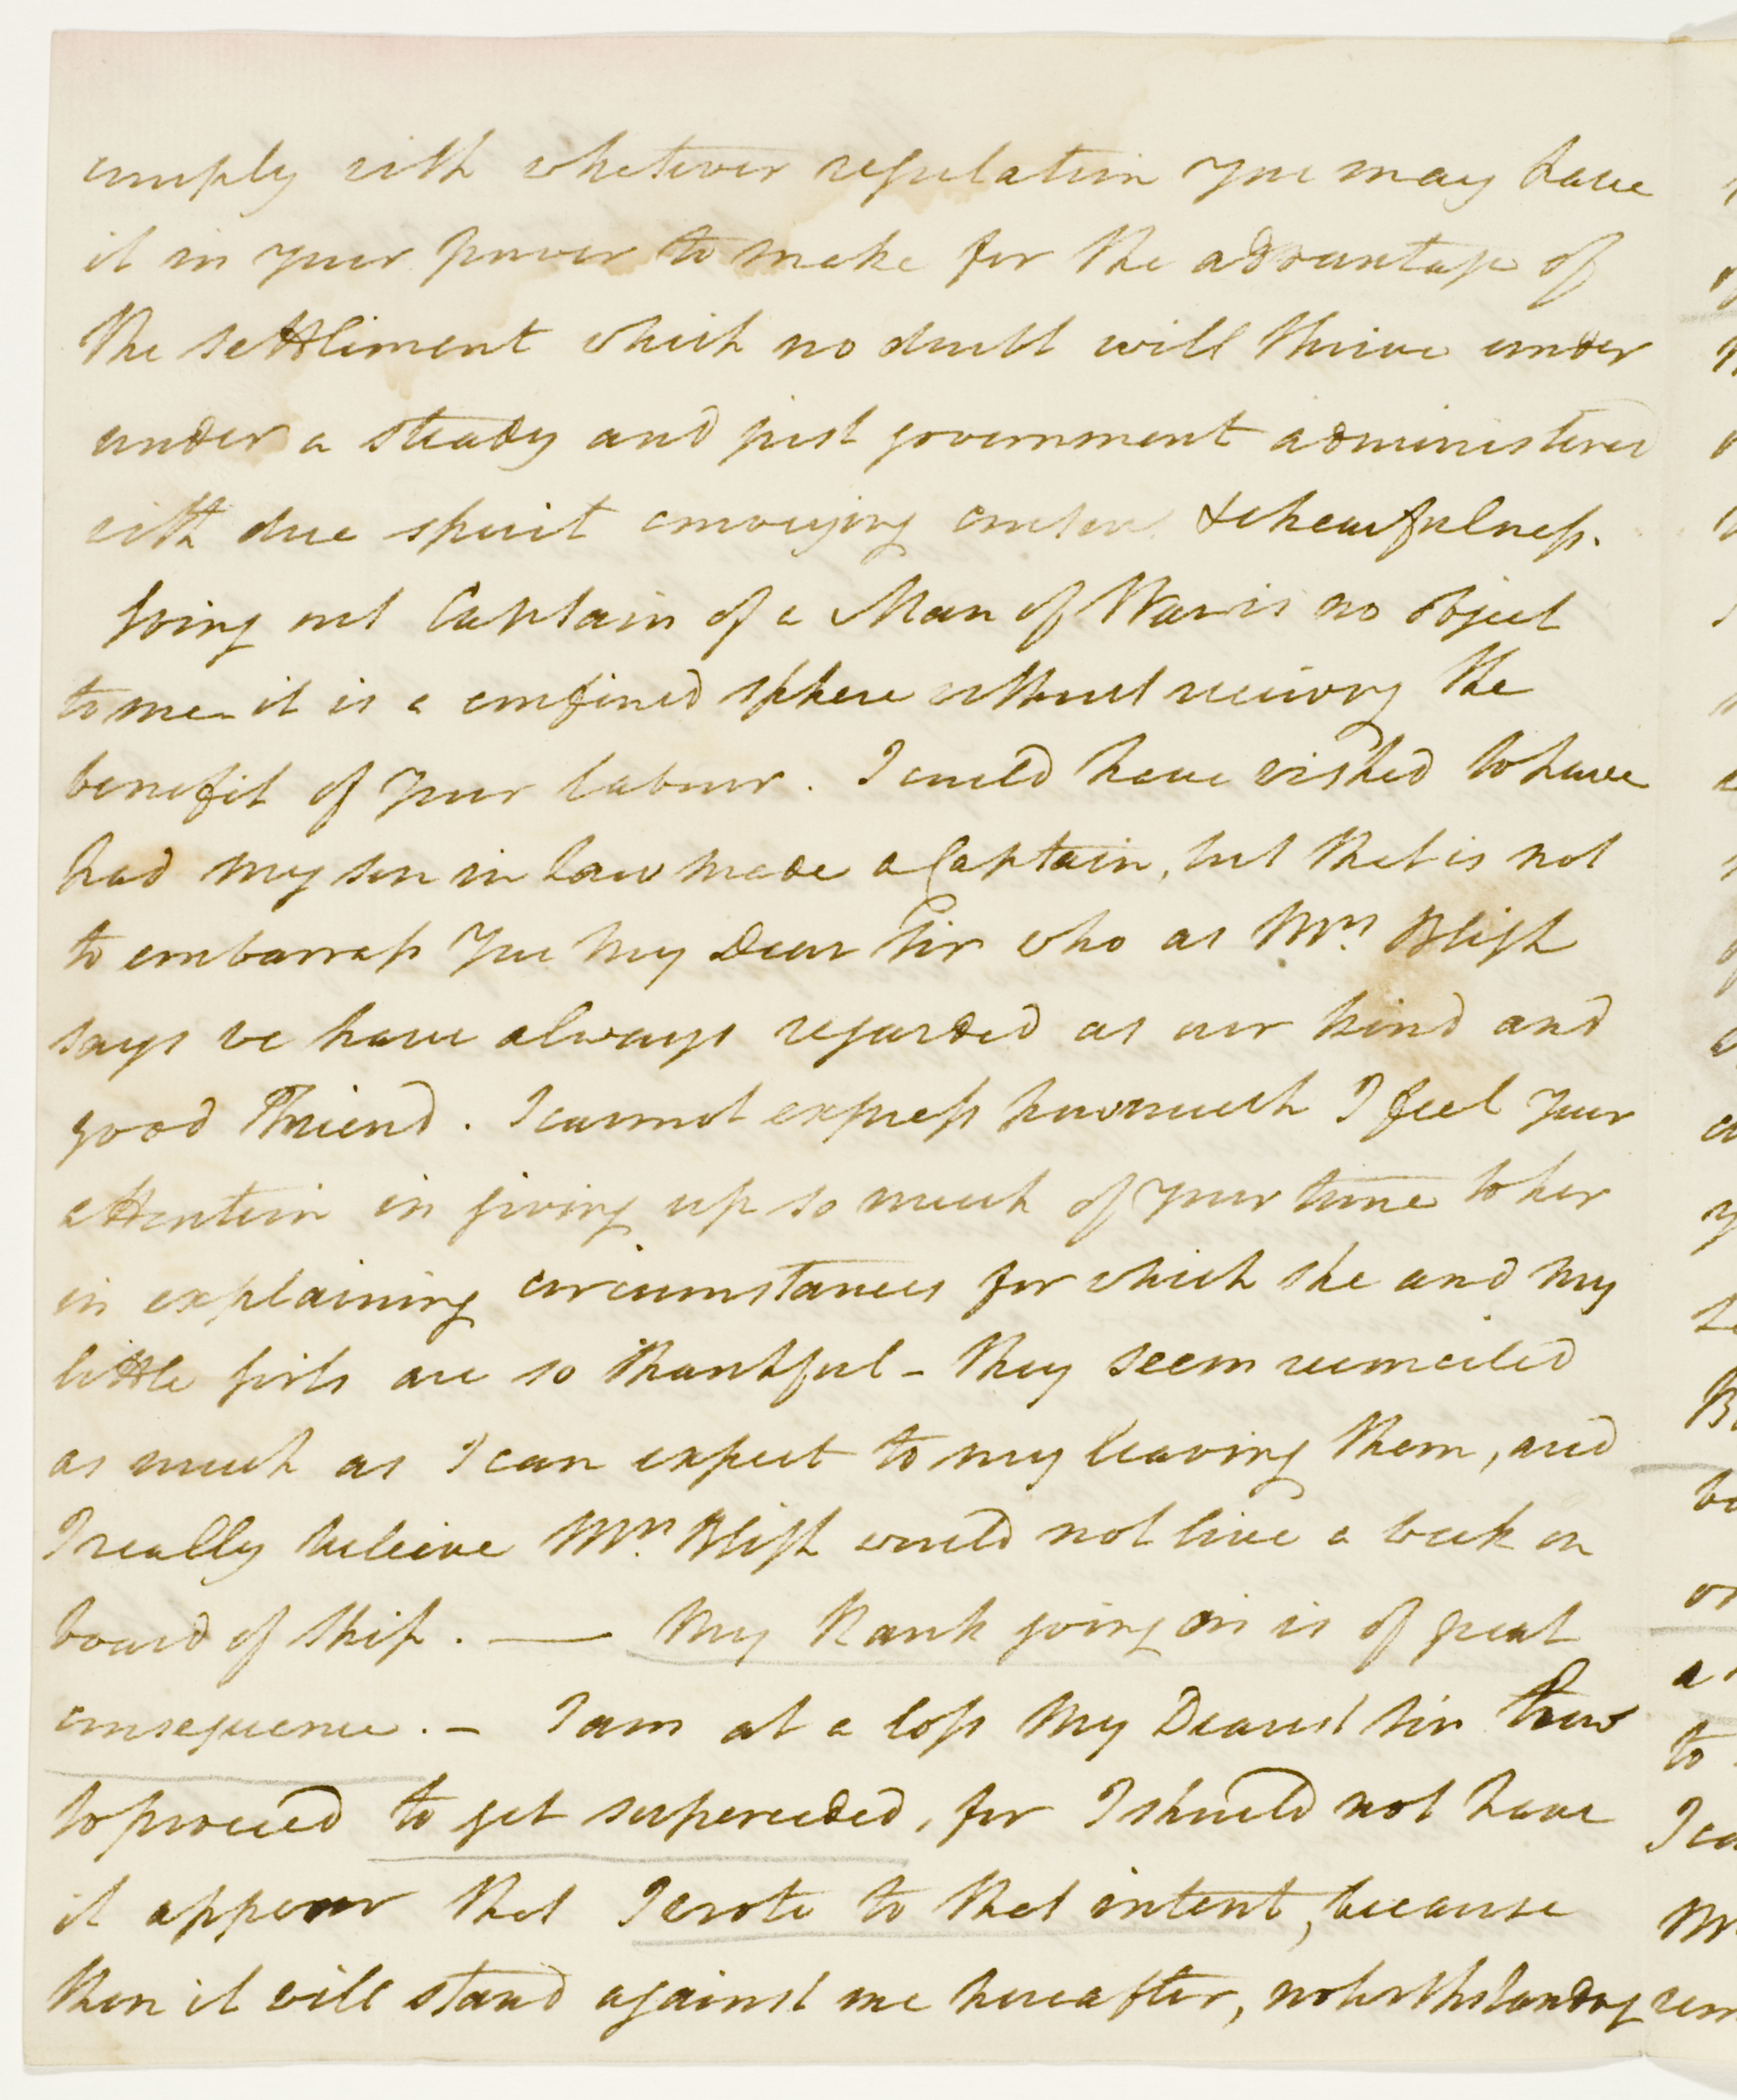 comply with whatever regulation you may have
it in your power to make for the advantage of
the settlement which no doubt will thrive under
under a steady and just government administered
with due spirit conveying content & chearfulness.
Going out Captain of a Man of War is no object
to me it is a confined sphere without receiving the
benefit of your labour. I could have wished to have
had my son in law made a Captain, but that is not
to embarrass you my Dear Sir who as Mrs. Bligh
says we have always regarded as our kind and
good Friend. I cannot express how much I feel your
attention in giving up so much of your time to her
in explaining circumstances for which she and my
little girls are so thankful - they seem reconciled
as much as I can expect to my leaving them, and
I really believe Mrs. Bligh would not live a week on
board of ship. — My Rank going on is of great
consequence. - I am at a loss my Dearest Sir how
to proceed to get superceeded, for I should not have
it appear that I wrote to that intent, because
then it will stand against me hereafter, notwithstanding